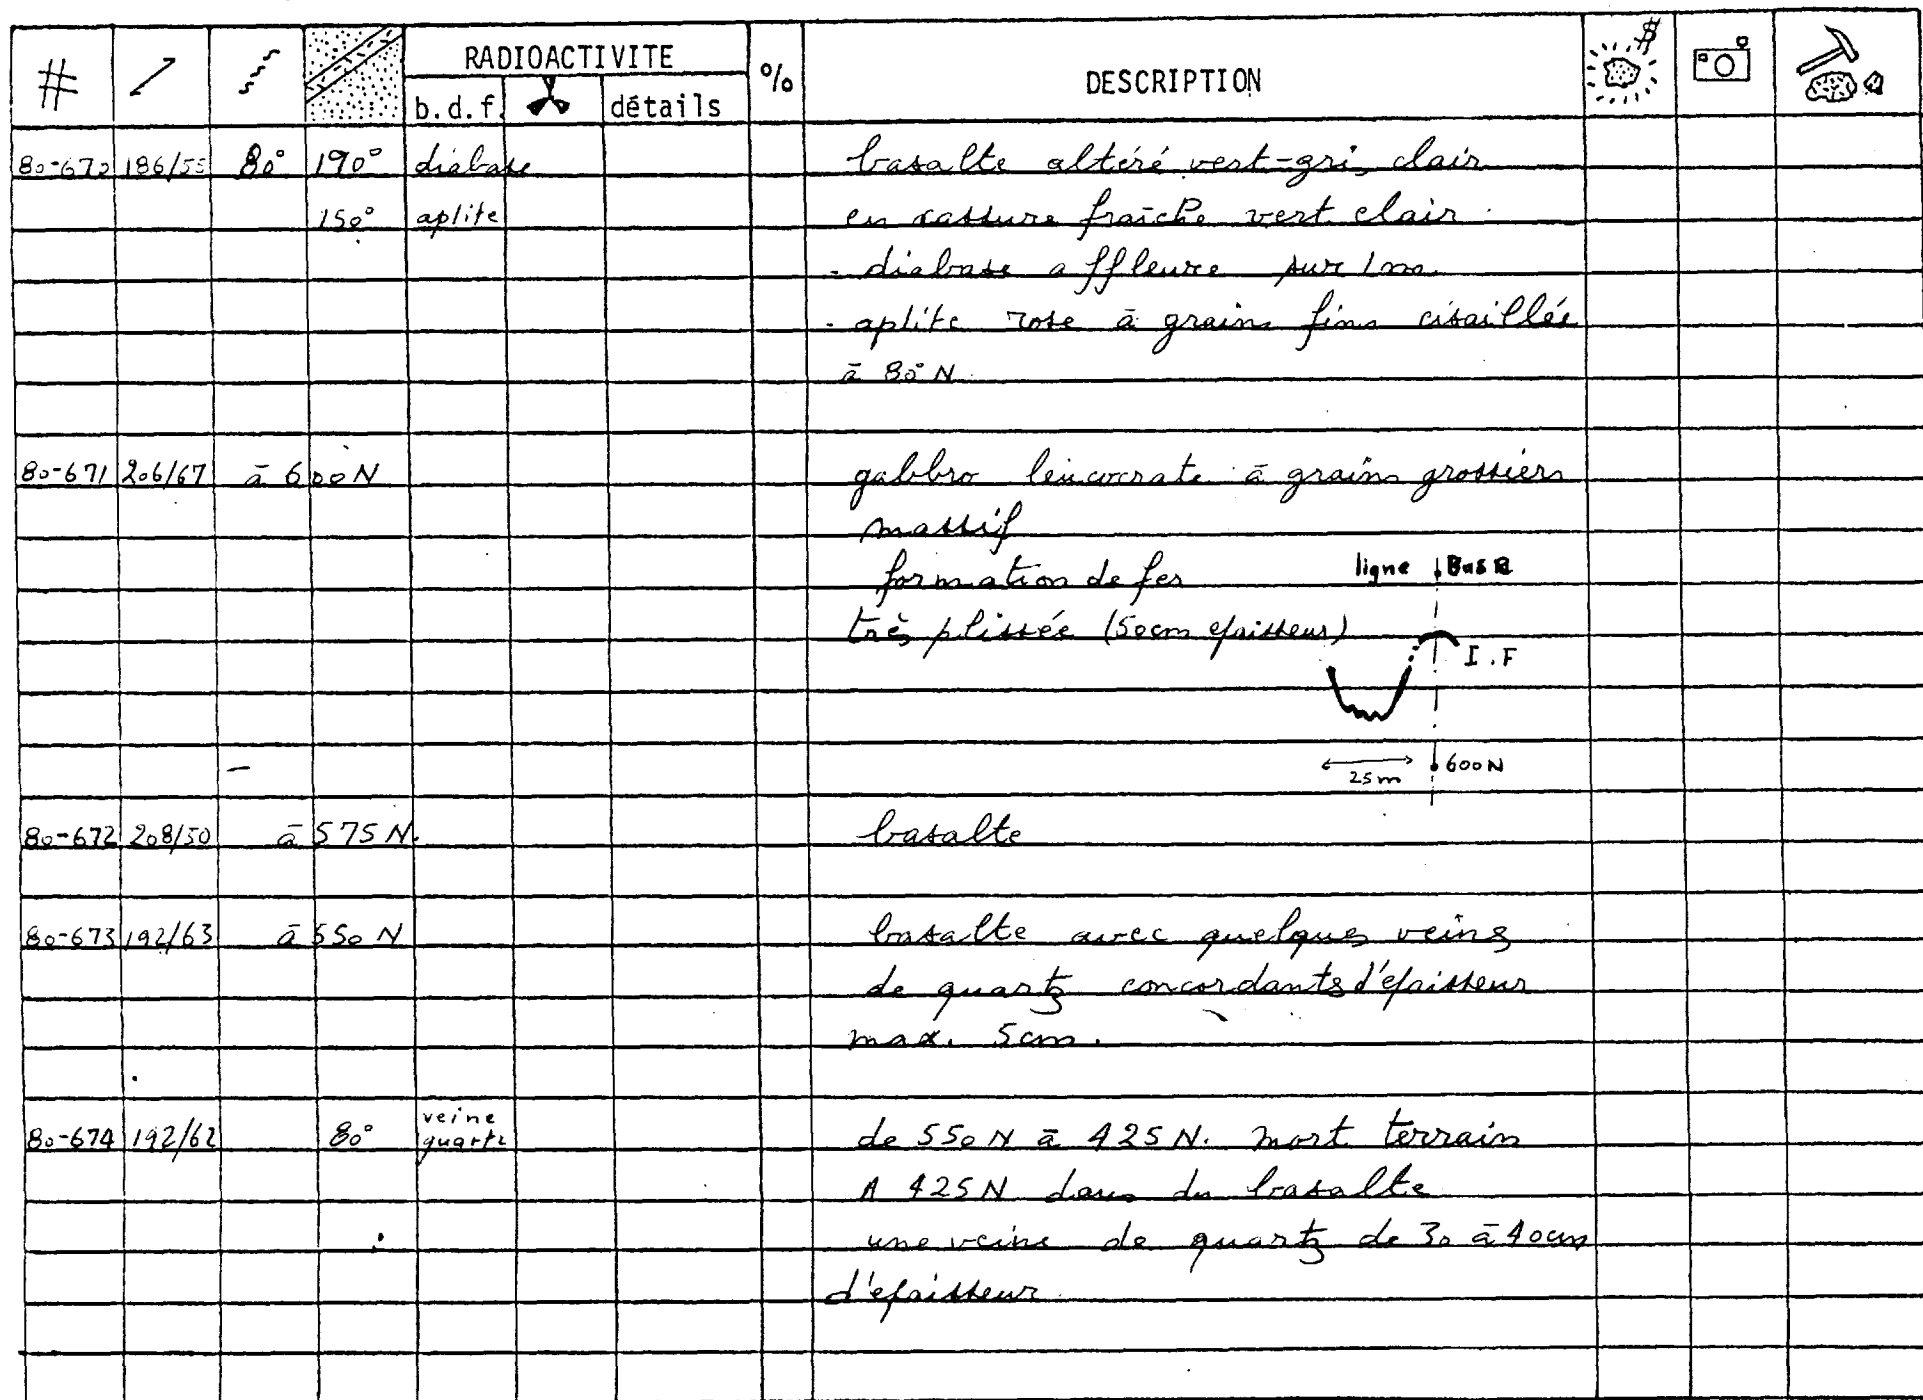 # RADIOACTIVITE % DESCRIPTION $
b.d.f. détails
80-670 186/55 80° 190° diabase basalte altéré vert-gris clair
150° aplite en cassure fraîche vert clair.
- diabase affleure sur 1m.
- aplite rose à grains fins cisaillée
à 80°N.
80-671 206/67 à 600N gabbro leucocrate à grains grossiers
massif
formation de fer ligne Base
très plissée (50cm epaisseur)
I.F
25m 600N
80-672 208/50 à 575N. basalte
80-673 192/63 à 550N basalte avec quelques veins
de quartz concordants d'epaisseur
max. 5cm.
80-674 192/62 80° veine quartz de 550N à 425N. mort terrain
A 425N dans du basalte
une veine de quartz de 30 à 40cm
d'epaisseur